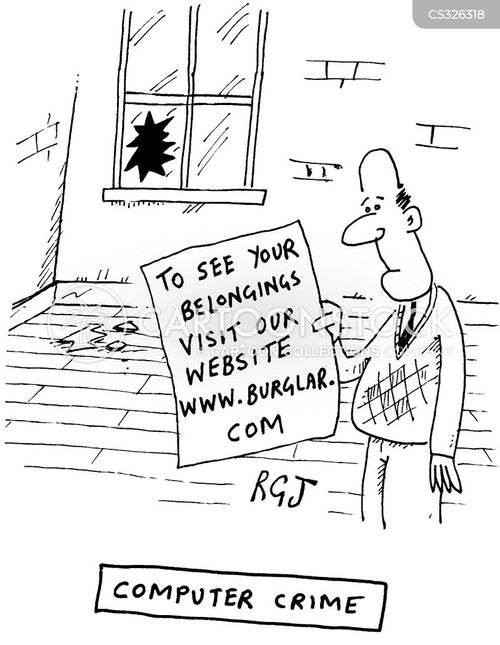 CS326318
TO SEE YOUR
BELONGINGS
VISIT OUR
WEBSITE
WWW.BURGLAR.
COM
CARTOONSTOCK
RGJ
COMPUTER CRIME